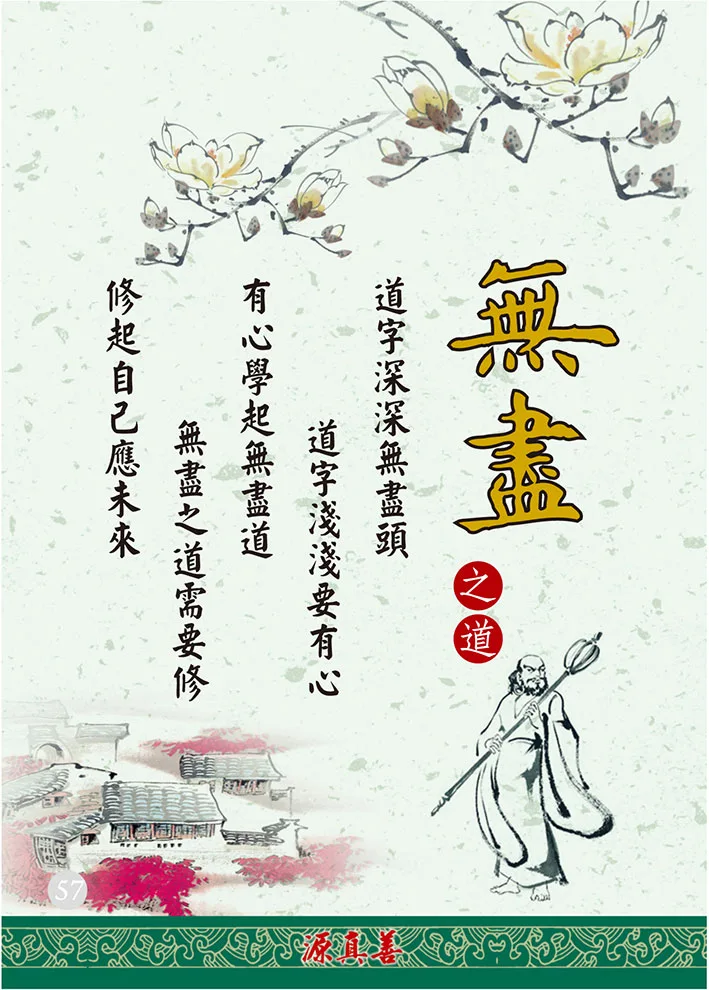 無盡
之道
道字深深無盡頭
道字淺淺要有心
有心學起無盡道
無盡之道需要修
修起自己應未來
57
源真善